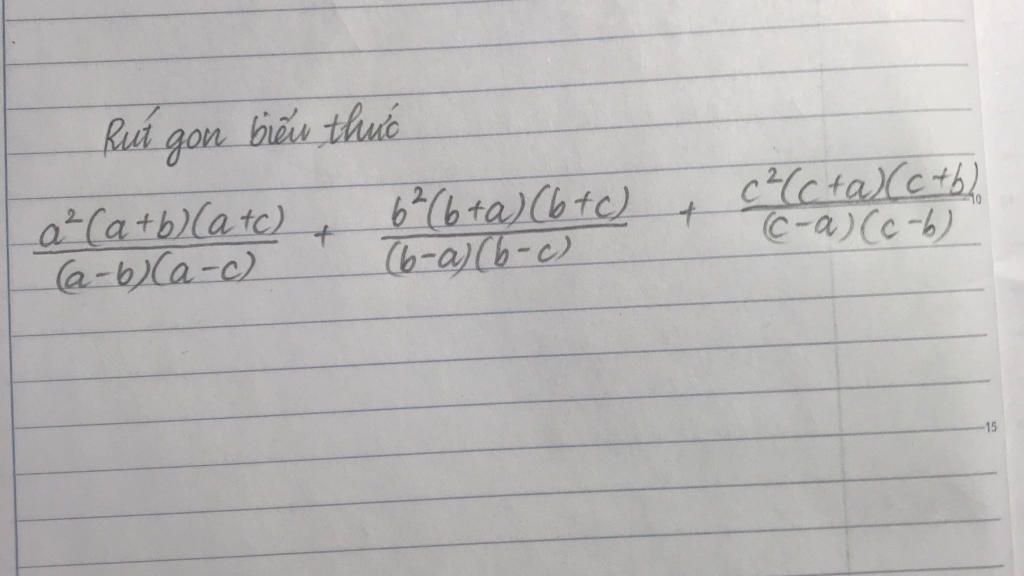 Rút gọn biểu thức
a²(a+b)(a+c)/(a-b)(a-c) + b²(b+a)(b+c)/(b-a)(b-c) + c²(c+a)(c+b)/(c-a)(c-b)
10
15